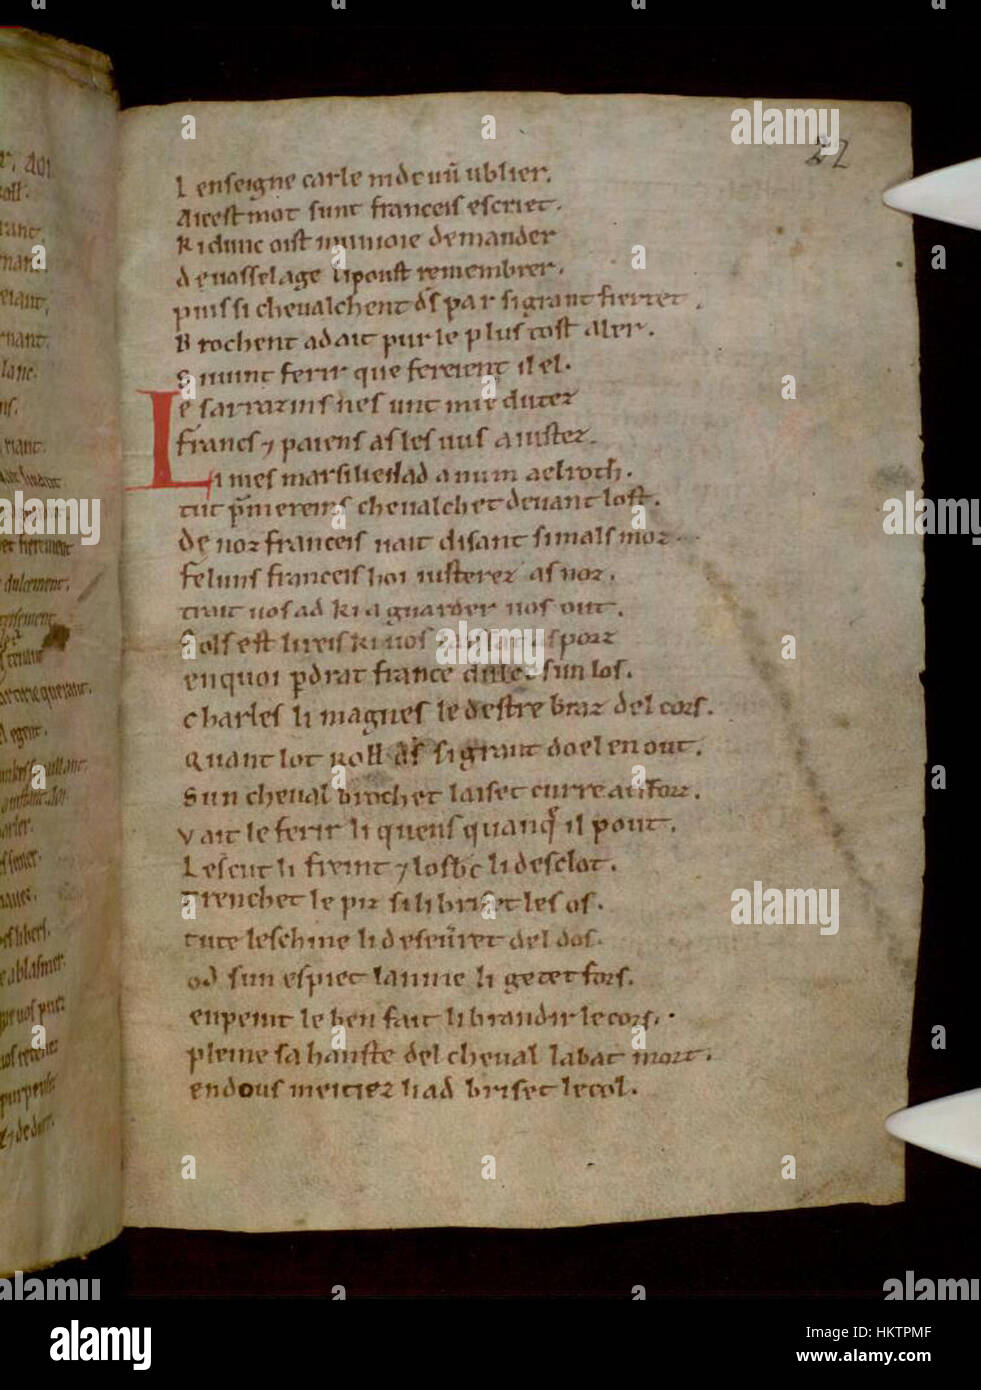 22
L enseigne carle n i devū ublier.
Aicest mot sunt franceis escriet.
Ki dunc oist munioie demander
de uasselage li poust remembrer.
puis si cheualchent ds̄ par si grant fiertet.
Brochent ad ait pur le plus tost aler.
Si uunt ferir que fereient il el.
E sarrazins nes unt mie dutez
francs ⁊ paiens as les uus aiustez.
Li nies marsilie il ad a num aelroth.
tut p̄mereins cheualchet deuant lost.
De noz franceis uait disant si mals moz.
feluns franceis hoi iusterez as noz.
trait uos ad ki a guarder uos out.
fols est li reis ki uos laissat as porz
enquoi ꝑdrat france dulce sun los.
Charles li magnes le destre braz del cors.
Quant lot roll̄ ds̄ si grant doel en out.
Sun cheual brochet laiset curre a esforz.
Vait le ferir li quens quanq̄ il pout.
Lescut li freint ⁊ losbc̄ li desclot.
Trenchet le piz si li briset les os.
tute leschine li deseūret del dos.
od sun espiet lanme li getet fors.
enpeint le ben fait li brandir le cors.
pleine sa hanste del cheual labat mort.
en dous meitiez li ad briset le col.
alamy
Image ID: HKTPMF
www.alamy.com